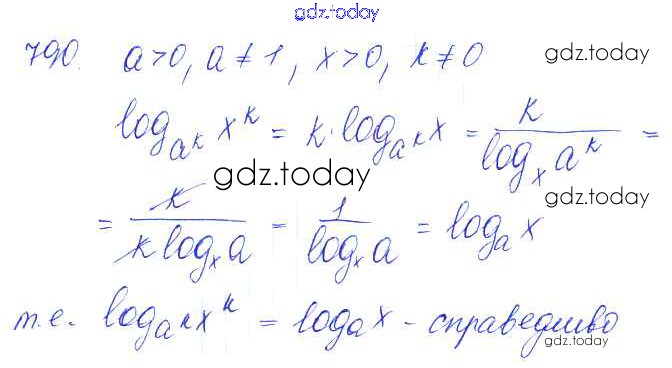 gdz.today
790. a>0, a≠1, x>0, k≠0
gdz.today
log_{a^k} x^k = k·log_{a^k} x = k/(log_x a^k) =
gdz.today
gdz.today
= k/(k log_x a) = 1/(log_x a) = log_a x
т.е. log_{a^k} x^k = log_a x - справедливо
gdz.today